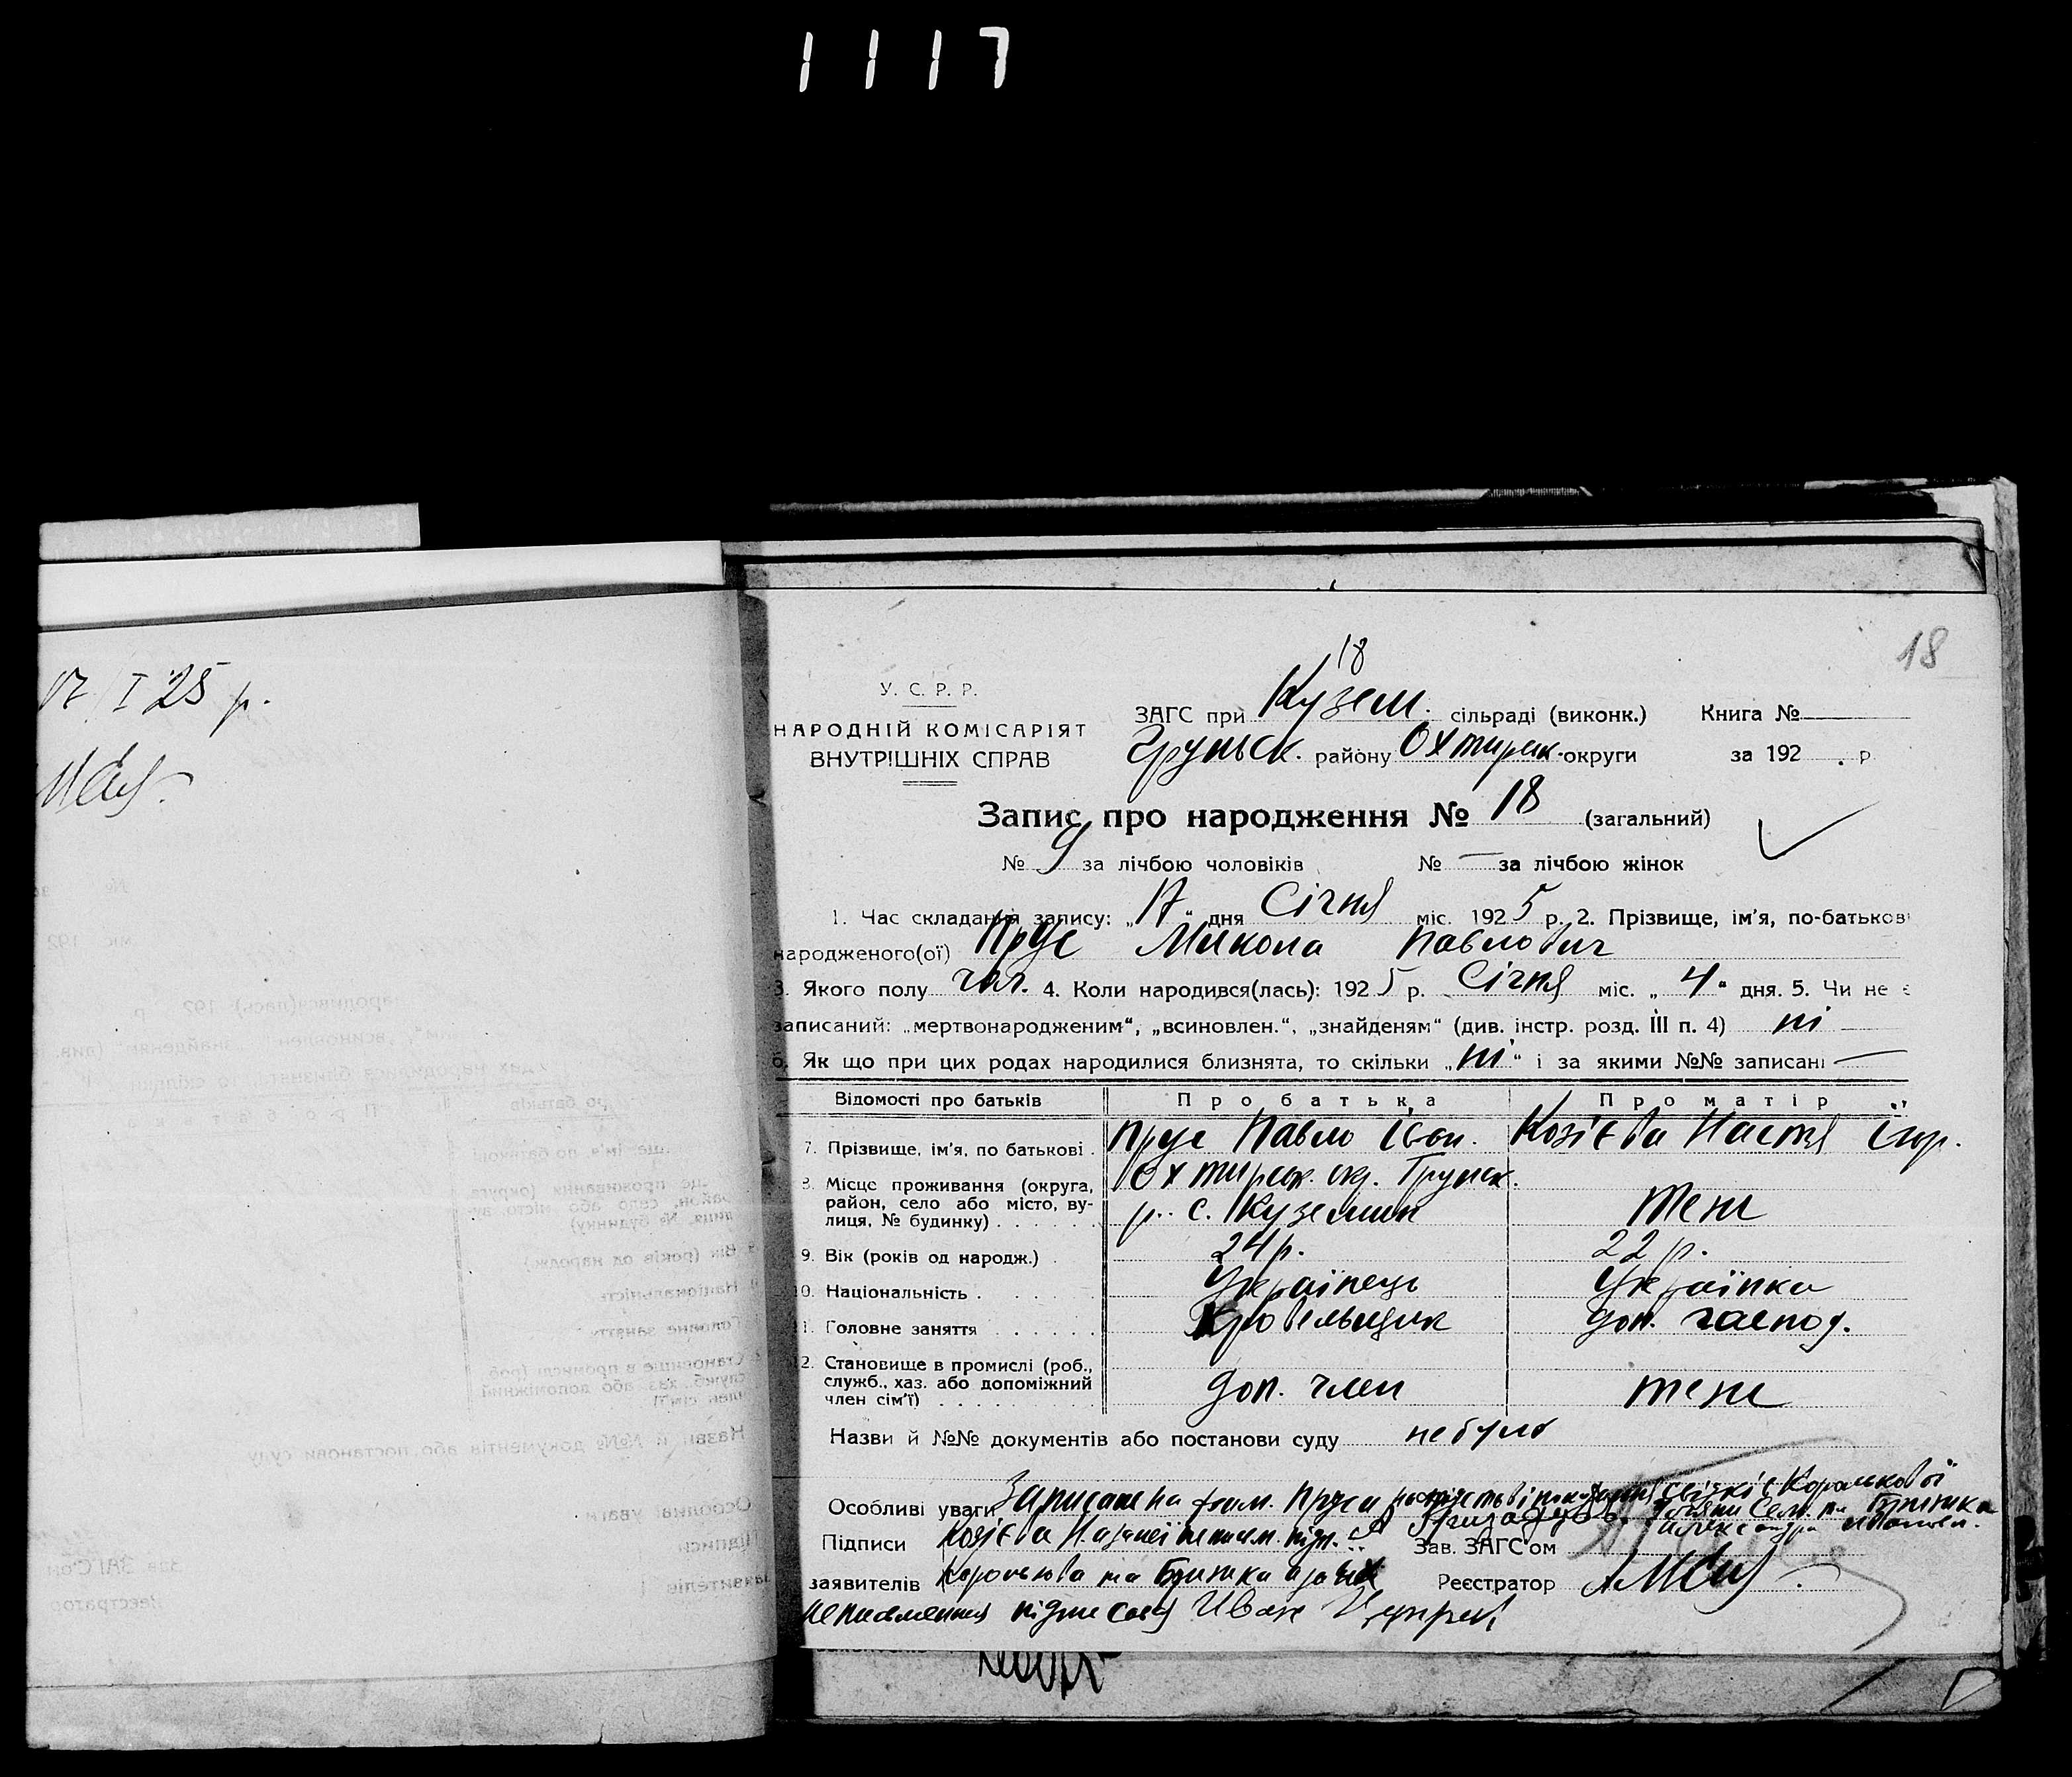 1117
17/I 25 р.
18
18
У. С. Р. Р.
НАРОДНІЙ КОМІСАРІЯТ
ВНУТРІШНІХ СПРАВ
ЗАГС при Кузем. сільраді (виконк.) Книга №
Грунськ. району Охтирськ. округи за 192 . р
Запис про народження № 18 (загальний)
№ 9 за лічбою чоловіків № — за лічбою жінок
1. Час складання запису: „17“ дня Січня міс. 1925 р. 2. Прізвище, ім'я, по-батькові
народженого(ої) Прус Микола Павлович
3. Якого полу чол. 4. Коли народився(лась): 1925 р. Січня міс. „4“ дня. 5. Чи не є
записаний: „мертвонародженим“, „всиновлен.“, „знайденям“ (див. інстр. розд. III п. 4) ні
6. Як що при цих родах народилися близнята, то скільки „ні“ і за якими №№ записані —
Відомості про батьків Про батька Про матір
7. Прізвище, ім'я, по батькові . Прус Павло Іван. Козієва Настя Ігор.
8. Місце проживання (округа, район, село або місто, вулиця, № будинку) Охтирськ. окр. Грунськ.
р. с. Куземин теж
9. Вік (років од народж.) 24 р. 22 р.
10. Національність . Українець Українка
11. Головне заняття Кровельщик доп. господ.
12. Становище в промислі (роб., служб., хаз. або допоміжний член сім'ї) доп. член теж
Назви й №№ документів або постанови суду не було
Особливі уваги Записан на фам. Пруса
Підписи Козієва
Зав. ЗАГС'ом
заявителів та Реєстратор
неписьменних підписався Иван